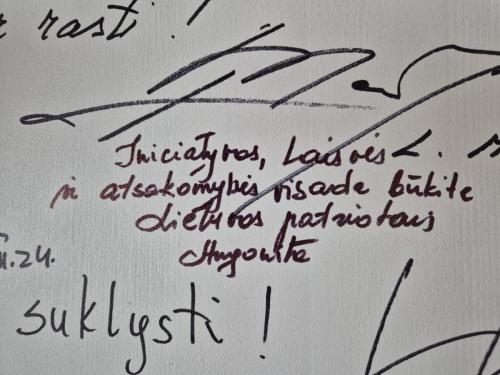 rasti!
Iniciatyvos, Laisvės
ir atsakomybės visada būkite
Lietuvos patriotais
suklysti!